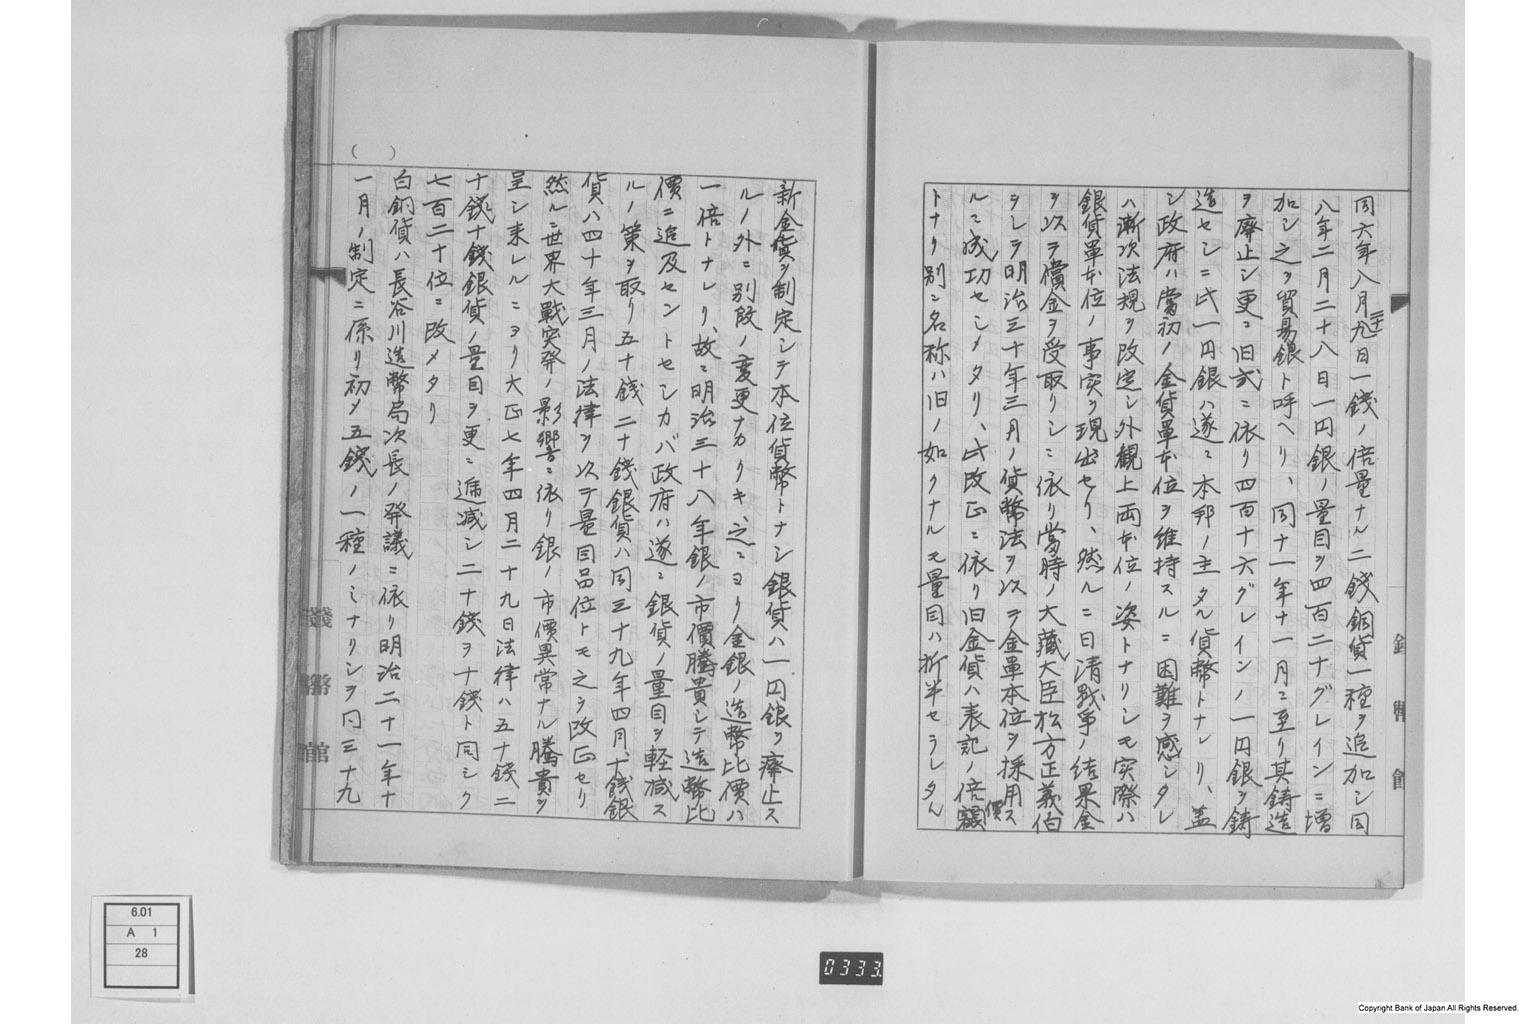 同六年八月二十九日一錢ノ倍量ナル二錢銅貨一種ヲ追加シ同
八年二月二十八日一円銀ノ量目ヲ四百二十グレインニ増
加シ之ヲ貿易銀ト呼ヘリ、同十一年十一月ニ至リ其鋳造
ヲ廃止シ更ニ旧式ニ依リ四百十六グレインノ一円銀ヲ鋳
造セシニ此一円銀ハ遂ニ本邦ノ主タル貨幣トナレリ、蓋
シ政府ハ當初ノ金貨單本位ヲ維持スルニ困難ヲ感シタレ
ハ漸次法規ヲ改定シ外観上両本位ノ姿トナリシモ実際ハ
銀貨單本位ノ事実ヲ現出セリ、然ルニ日清戦争ノ結果金
ヲ以テ償金ヲ受取リシニ依リ當時ノ大藏大臣松方正義伯
ヲシテ明治三十年三月ノ貨幣法ヲ以テ金單本位ヲ採用ス
ルニ成功セシメタリ、此改正ニ依リ旧金貨ハ表記ノ倍價額
トナリ別ニ名称ハ旧ノ如クナルモ量目ハ折半セラレタル
新金貨ヲ制定シテ本位貨幣トナシ銀貨ハ一円銀ヲ廢止ス
ルノ外ニ別段ノ変更ナカリキ、之ニヨリ金銀ノ造幣比價ハ
一倍トナレリ、故ニ明治三十八年銀ノ市價騰貴シテ造幣比
價ニ追及セントセシカバ政府ハ遂ニ銀貨ノ量目ヲ軽減ス
ルノ策ヲ取リ五十錢二十錢銀貨ハ同三十九年四月、十錢銀
貨ハ四十年三月ノ法律ヲ以テ量目品位トモ之ヲ改正セリ
然ルニ世界大戰突発ノ影響ニ依リ銀ノ市價異常ナル騰貴ヲ
呈シ来レルニヨリ大正七年四月二十九日法律ハ五十錢二
十錢十錢銀貨ノ量目ヲ更ニ逓減シ二十錢ヲ十錢ト同シク
七百二十位ニ改メタリ
白銅貨ハ長谷川造幣局次長ノ発議ニ依リ明治二十一年十
一月ノ制定ニ係リ初メ五錢ノ一種ノミナリシヲ同三十九
( )
錢幣館
錢幣館
6.01
A 1
28
0333.
Copyright Bank of Japan All Rights Reserved.